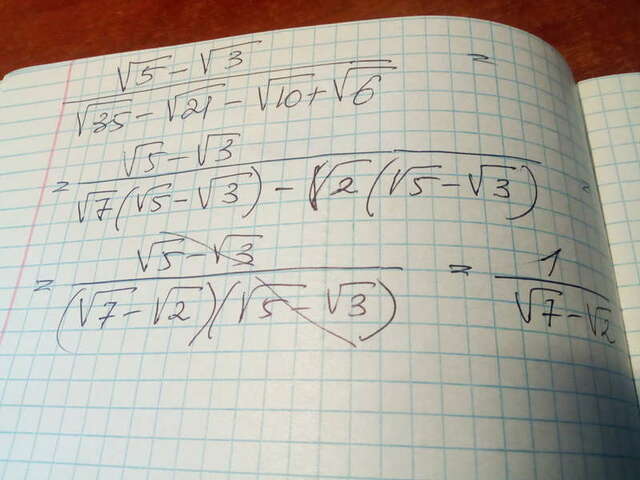 (√5 - √3) / (√35 - √21 - √10 + √6) =
= (√5 - √3) / (√7(√5 - √3) - √2(√5 - √3)) =
= (√5 - √3) / ((√7 - √2)(√5 - √3)) = 1 / (√7 - √2)